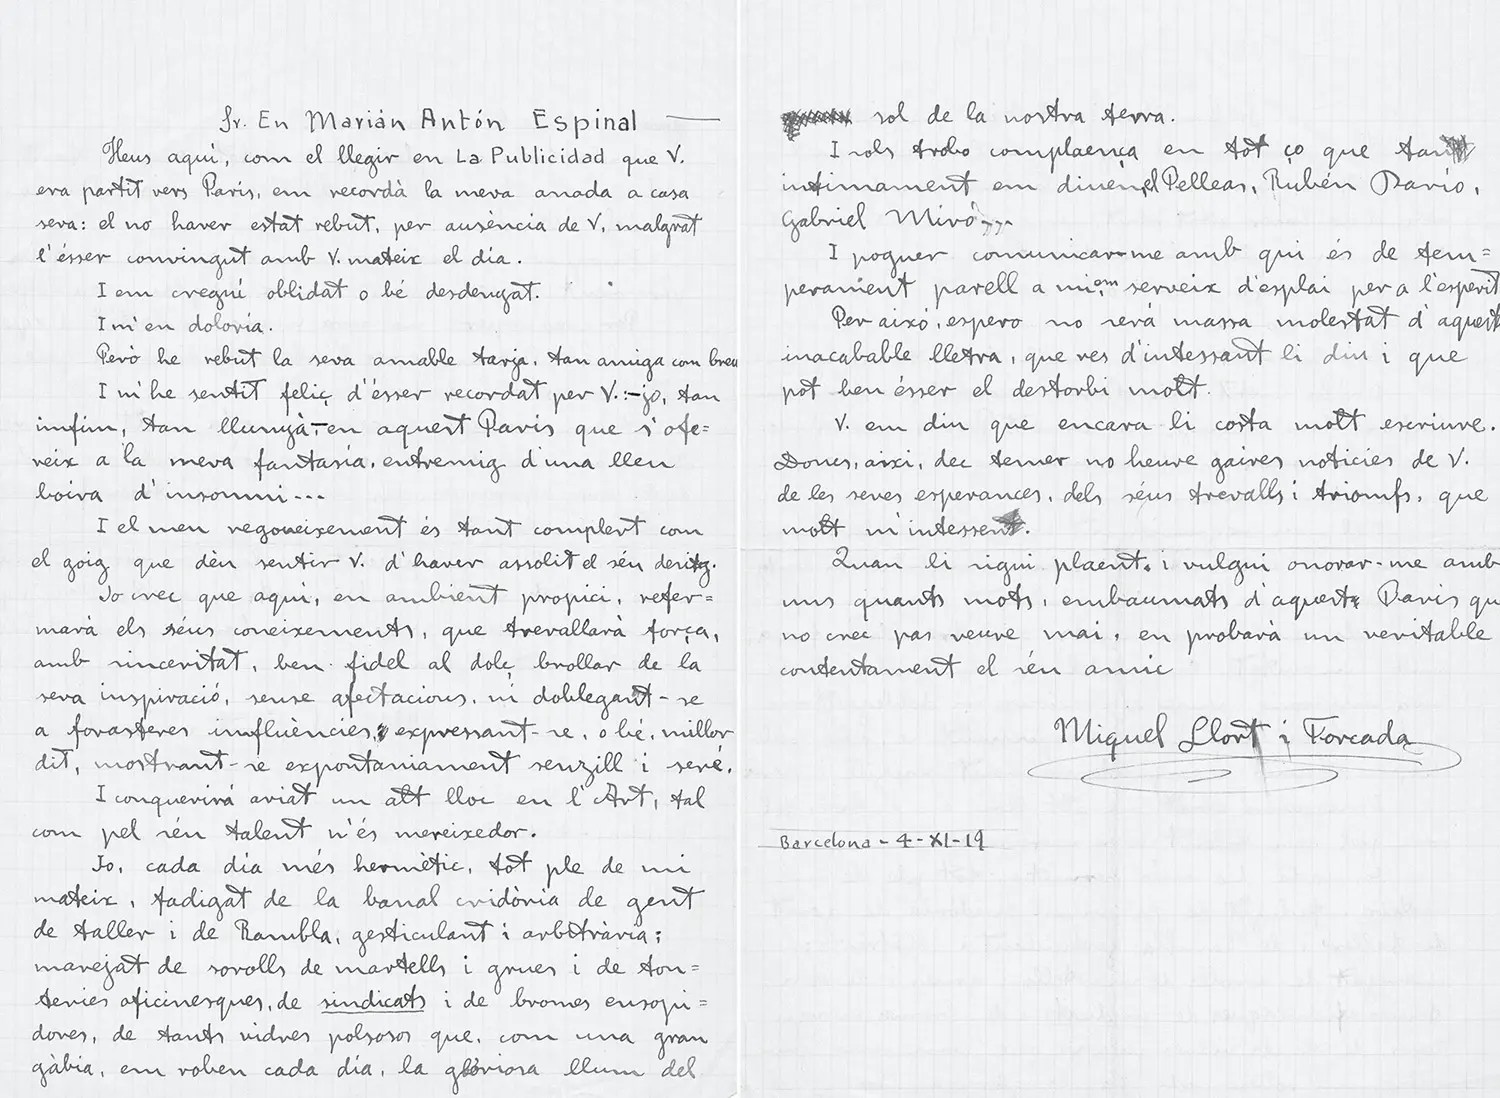 Sr. En Marián Antón Espinal
Heus aquí, com el llegir en La Publicidad que V.
era partit vers París, em recordà la meva anada a casa
seva: el no haver estat rebut, per ausència de V. malgrat
l'ésser convingut amb V. mateix el dia.
I em creguí oblidat o bé desdenyat.
I m'en doloria.
Però he rebut la seva amable tarja, tan amiga com breu
I m'he sentit feliç d'ésser recordat per V.:-jo, tan
ínfim, tan llunyà,-en aquest París que s'ofe=
reix a la meva fantasía, entremig d'una lleu
boira d'insomni...
I el meu regoneixement és tant complert com
el goig que dèu sentir V. d'haver assolit el séu desitg.
Jo crec que aquí, en ambient propici, refer=
marà els séus coneixements, que trevallarà força,
amb sinceritat, ben fidel al dolç brollar de la
seva inspiració, sense afectacious, ni doblegant-se
a forasteres influències, expressant-se, o bé, millor
dit, mostrant-se expontaniament senzill i seré.
I conquerirá aviat un alt lloc en l'Art, tal
com pel séu talent n'és mereixedor.
Jo, cada dia més hermètic, tot ple de mi
mateix, fadigat de la banal cridòria de gent
de taller i de Rambla, gesticulant i arbitrària;
marejat de sorolls de martells i grues i de ton=
teries oficinesques, de sindicats i de bromes ensopi=
dores, de tants vidres polsosos que, com una gran
gàbia, em roben cada día, la gloriosa llum del
sol de la nostra terra.
I sols trobo complaença en tot ço que tant
intimament em diuen el Pelleas, Rubén Darío,
Gabriel Miró...
I poguer comunicar-me amb qui és de tem=
perament parell a mi, em serveix d'esplai per a l'esperit
Per això, espero no serà massa molestat d'aquest
inacabable lletra, que res d'intessant li diu i que
pot ben ésser el destorbi molt.
V. em diu que encara li costa molt escriure.
Doncs, així, dec temer no heure gaires noticies de V.
de les seves esperances, dels séus trevalls i triomfs, que
molt m'intessent.
Quan li sigui plaent, i vulgui onorar-me amb
uns quants mots, embaumats d'aquest París qu
no crec pas veure mai, en probarà un veritable
contentament el séu amic
Miquel Llort i Forcada
Barcelona - 4-XI-19